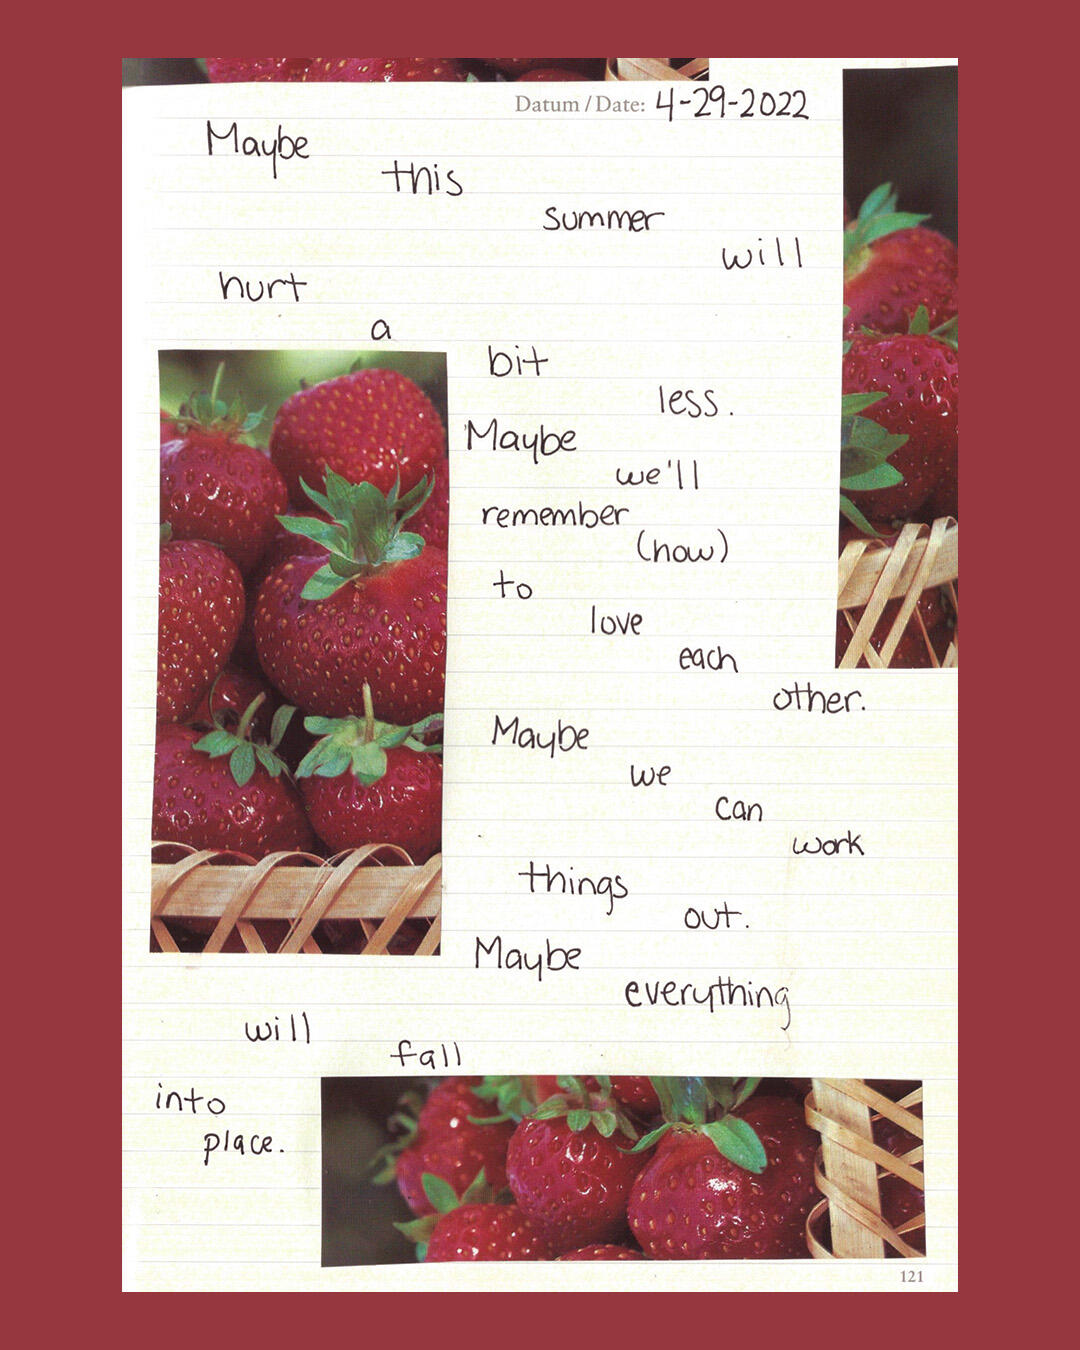 Datum / Date: 4-29-2022
Maybe
this
summer
will
hurt
a
bit
less.
Maybe
we'll
remember
(how)
to
love
each
other.
Maybe
we
can
work
things
out.
Maybe
everything
will
fall
into
place.
121